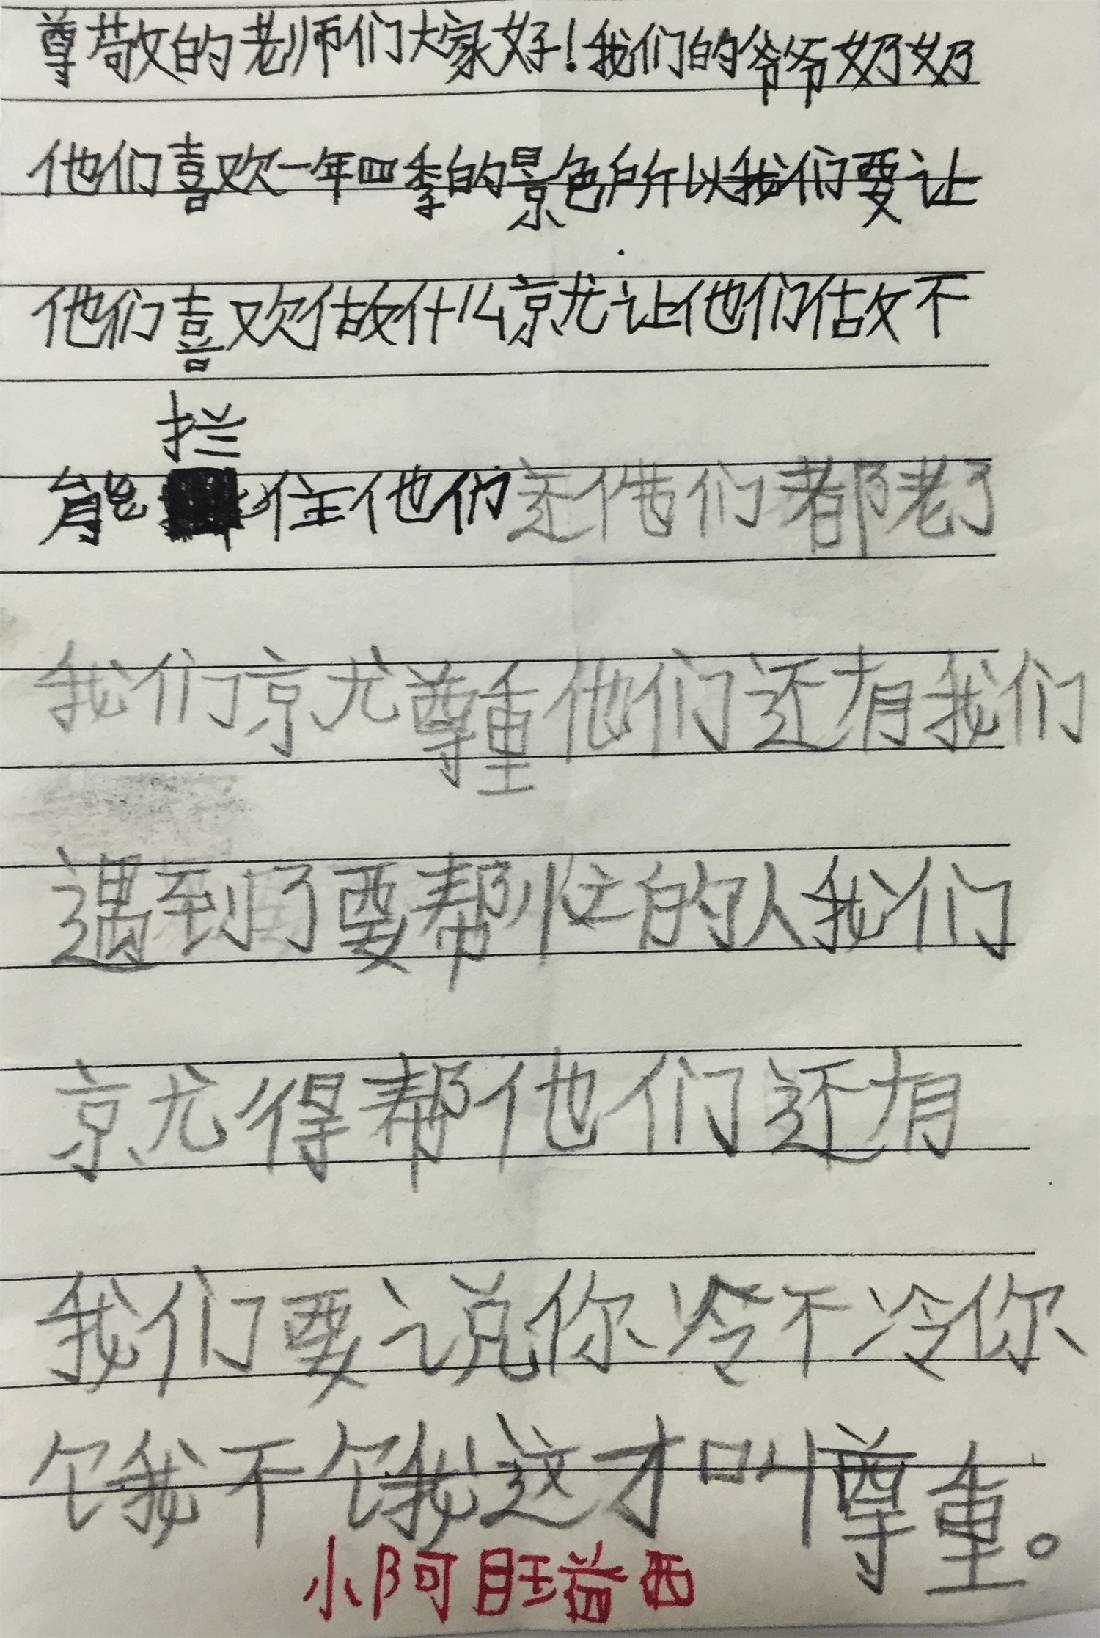 尊敬的老师们大家好!我们的爷爷奶奶
他们喜欢一年四季的景色所以我们要让
他们喜欢做什么就让他们做不
拦
能住他们还他们都老了
我们就尊重他们还有我们
遇到了要帮忙的人我们
就得帮他们还有
我们要说你冷不冷你
饿不饿这才叫尊重。
小阿旺益西